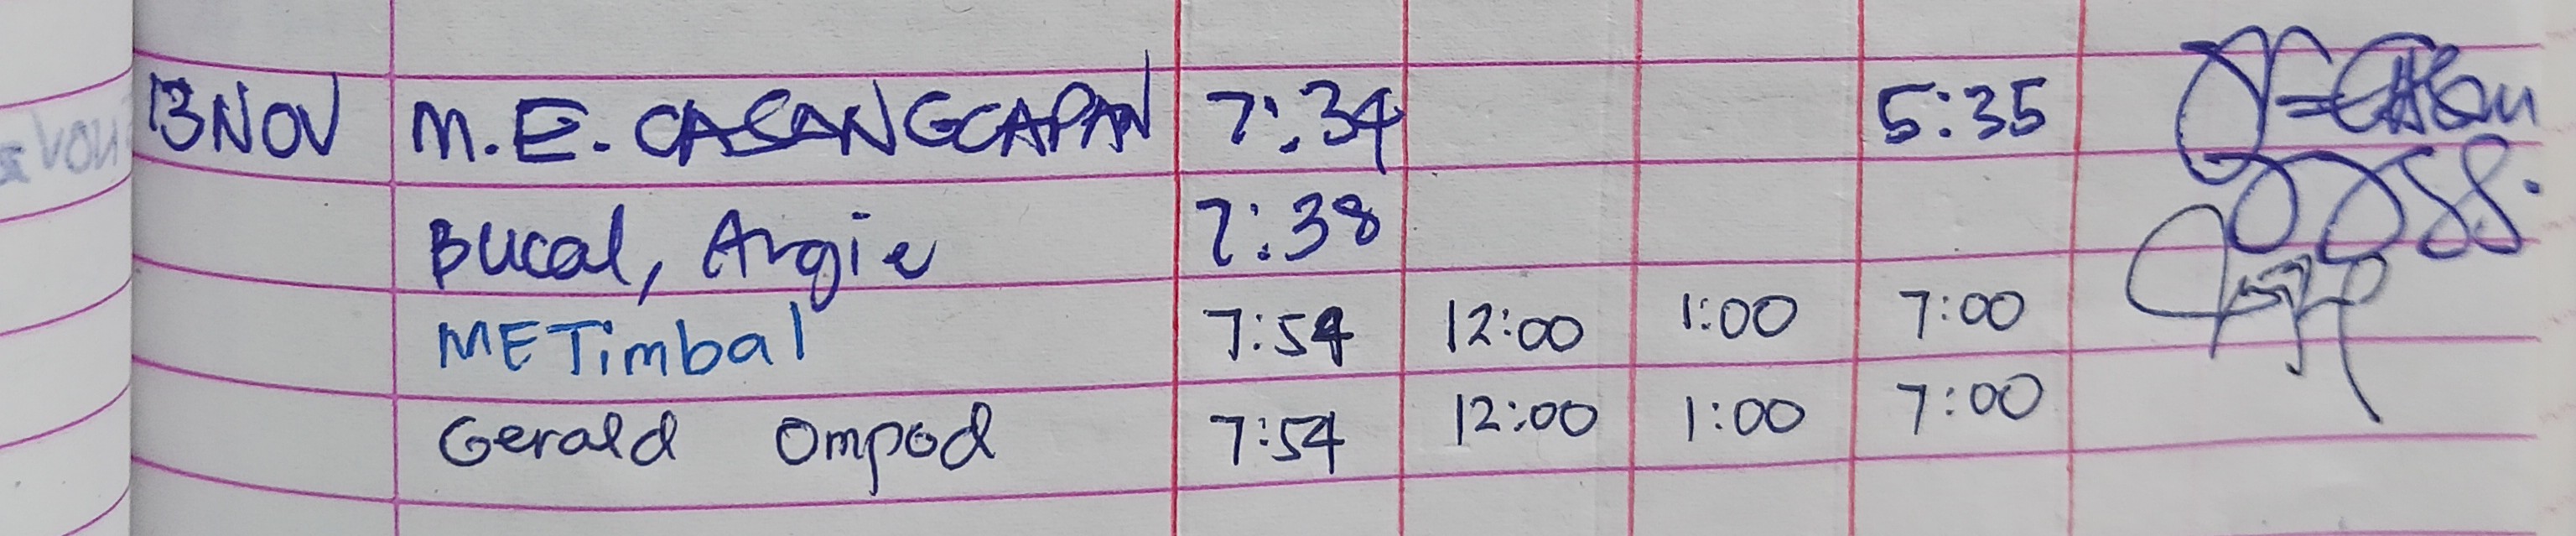 13 NOV M.E. CASANGCAPAN 7:34 5:35
Bucal, Argie 7:38
METimbal 7:54 12:00 1:00 7:00
Gerald Ompod 7:54 12:00 1:00 7:00